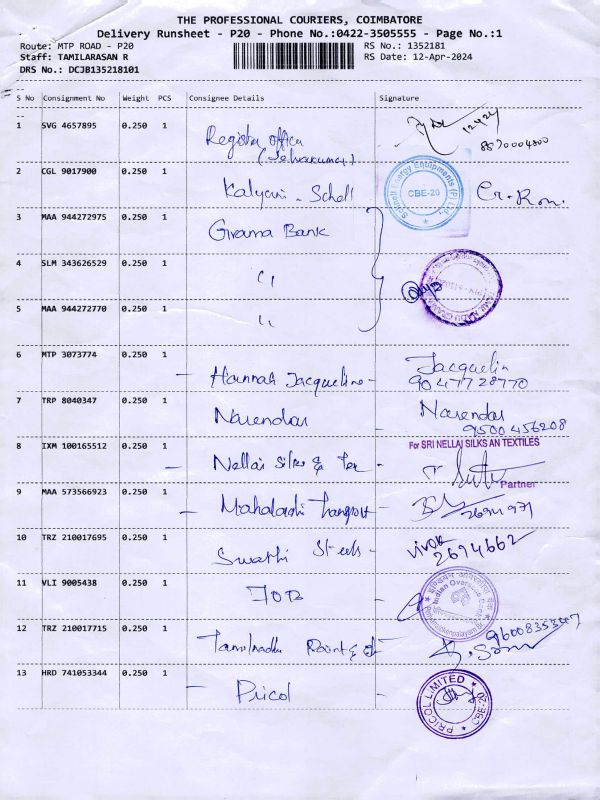 THE PROFESSIONAL COURIERS, COIMBATORE
Delivery Runsheet - P20 - Phone No.:0422-3505555 - Page No.:1
Route: MTP ROAD - P20 RS No.: 1352181
Staff: TAMILARASAN R RS Date: 12-Apr-2024
DRS No.: DCJB135218101
S No Consignment No Weight PCS Consignee Details Signature
1 SVG 4657895 0.250 1 Register office
(Selvakumar) 12424
8870004800
2 CGL 9017900 0.250 1 Kalyani - Schell
Schnell Energy Equipments (P) Ltd. CBE-20
3 MAA 944272975 0.250 1 Grama Bank
4 SLM 343626529 0.250 1 "
5 MAA 944272770 0.250 1 "
6 MTP 3073774 0.250 1 - Hannah Jacqueline - Jacquelin
9047728770
7 TRP 8040347 0.250 1 Narendar Narendar
9500456208
8 IXM 100165512 0.250 1 - Nellai Silks & Tex - For SRI NELLAI SILKS AN TEXTILES
Partner
9 MAA 573566923 0.250 1 - Mahalaxmi 2694971
10 TRZ 210017695 0.250 1 Swathi Steels - Vivek
2694662
11 VLI 9005438 0.250 1 IOB -
Indian Overseas Bank
12 TRZ 210017715 0.250 1 Tamilnadu 9600835347
13 HRD 741053344 0.250 1 - Pricol
PRICOL LIMITED CBE-20